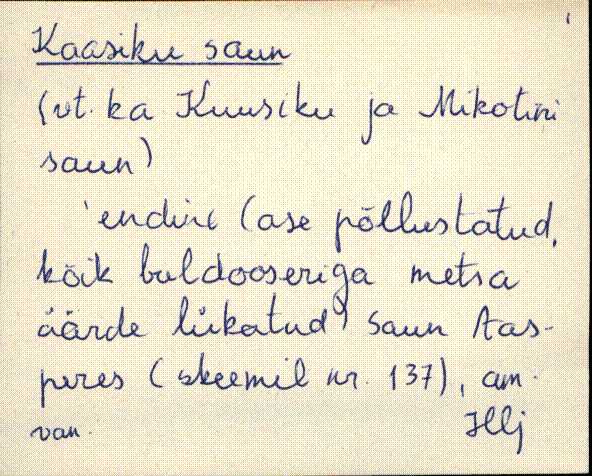 Kaasiku saun
(vt. ka Kuusiku ja Mikotini
saun)
endine (ase põllustatud,
kõik buldooseriga metsa
äärde lükatud) saun Aas-
peres (skeemil nr. 137), am.
van. Hlj